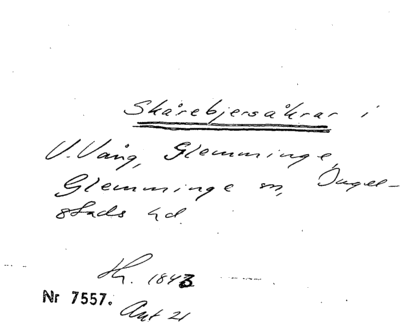 Skårebjersåkrar i
V. Vång, Glemminge,
Glemminge sn, Ingel-
stads hd.
Hr. 1843
Nr 7557.
Akt 21